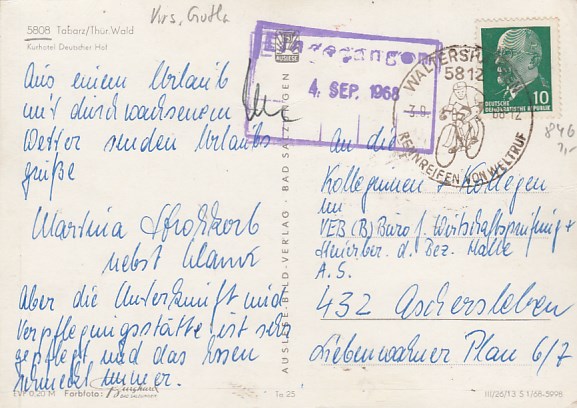 Krs. Gotha
5808 Tabarz/Thür. Wald
Kurhotel Deutscher Hof
Aus einem Urlaub
mit durchwachsenem
Wetter senden Urlaubs
grüße
Martina Strohkorb
nebst Mann
Aber die Unterkunft und
Verpflegungsstätte ist sehr
gepflegt und das Essen
schmeckt immer.
EVP 0,20 M Farbfoto: Burghard
BAD SALZUNGEN
To 25
AUSLESE
AUSLESE-BILD-VERLAG · BAD SALZUNGEN
Eingegangen
4. SEP. 1968
WALTERSHAUSEN
5812
3.9. 68-12
RENNREIFEN VON WELTRUF
DEUTSCHE
DEMOKRATISCHE REPUBLIK
10
846
An die
Kolleginnen + Kollegen
im
VEB (B) Büro f. Wirtschaftsprüfung +
Steuerber. d. Bez. Halle
A.S.
432 Aschersleben
Liebenwahner Plan 6/7
III/26/13 S 1/68-5998